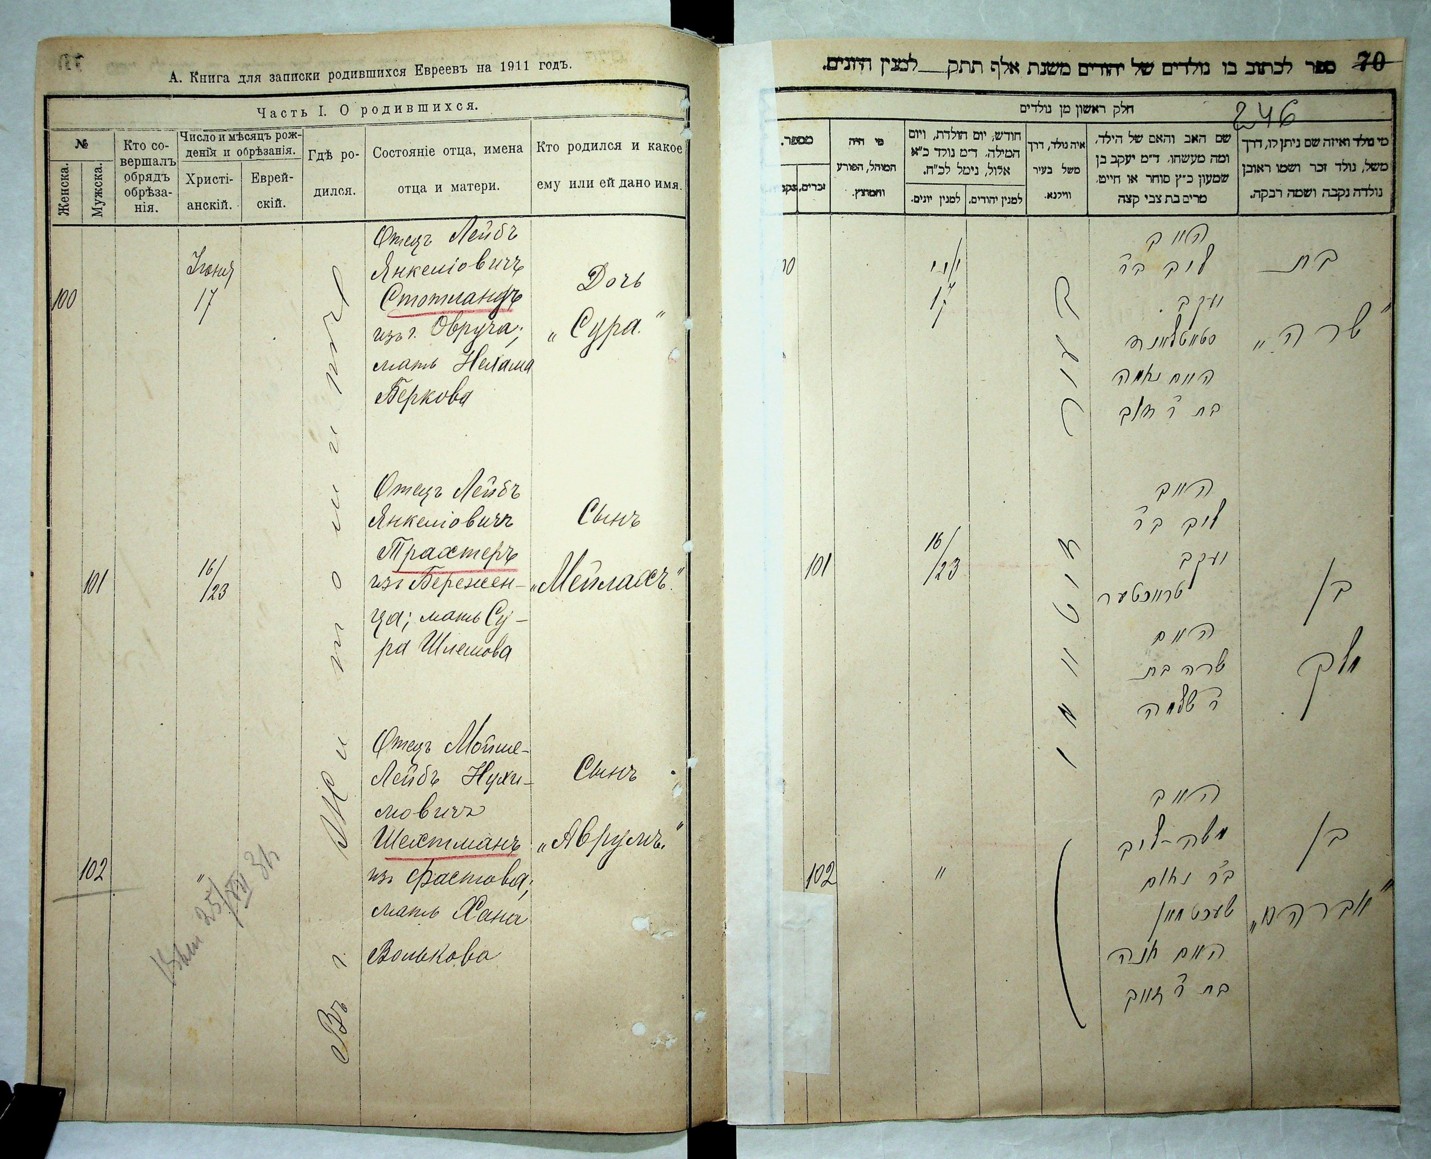 А. Книга для записки родившихся Евреевъ на 1911 годъ.
Часть I. О родившихся.
№
Женска.
Мужска.
Кто со-
вершалъ
обрядъ
обрѣза-
нія.
Число и мѣсяцъ рож-
денія и обрѣзанія.
Христі-
анскій.
Еврей-
скій.
Гдѣ ро-
дился.
Состояніе отца, имена
отца и матери.
Кто родился и какое
ему или ей дано имя.
Въ г. Житомирѣ
100
Іюня
17
Отецъ Лейбъ
Янкеліовичъ
Стотландъ
изъ г. Овруча;
мать Нехама
Беркова
Дочь
„Сура.“
101
16/
/23
Отецъ Лейбъ
Янкеліовичъ
Трахтеръ
изъ Бережен-
ца; мать Су-
ра Шлемова
Сынъ
„Мейлахъ.“
102
"
Отецъ Мойше-
Лейбъ Нухи-
мовичъ
Шехтманъ
изъ Фастова;
мать Хана
Волькова
Сынъ
„Аврумъ.“
25/VII 36
ספר לכתוב בו נולדים של יהודים משנת אלף תתק__למנין היונים.
70
246
חלק ראשון מן נולדים
מספר.
זכרים,
מי היה
המוהל, הפורע
והמוצץ.
חודש, יום הולדת, ויום
המילה. ד״מ נולד כ״א
אלול, נימל לכ״ח.
למנין יונים.
למנין יהודים.
איה נולד, דרך
משל בעיר
ווילנא.
שם האב והאם של הילד,
ומה מעשהו. ד״מ יעקב בן
שמעון כ״ץ סוחר או חייט.
מרים בת צבי קצה
מי נולד ואיזה שם ניתן לו, דרך
משל, נולד זכר ושמו ראובן
נולדה נקבה ושמה רבקה.
זיטאמיר
יוני
17
האב
ליב בר
יעקב
סטאטלאנד
האם נחמה
בת ר'
בת
„שרה“
101
16/
/23
האב
ליב בר
יעקב
טראכטער
האם
שרה בת
ר' שלמה
בן
מלך
102
"
האב
משה-ליב
בר נחום
שעכטמאן
האם חנה
בת ר'
בן
„אברהם“